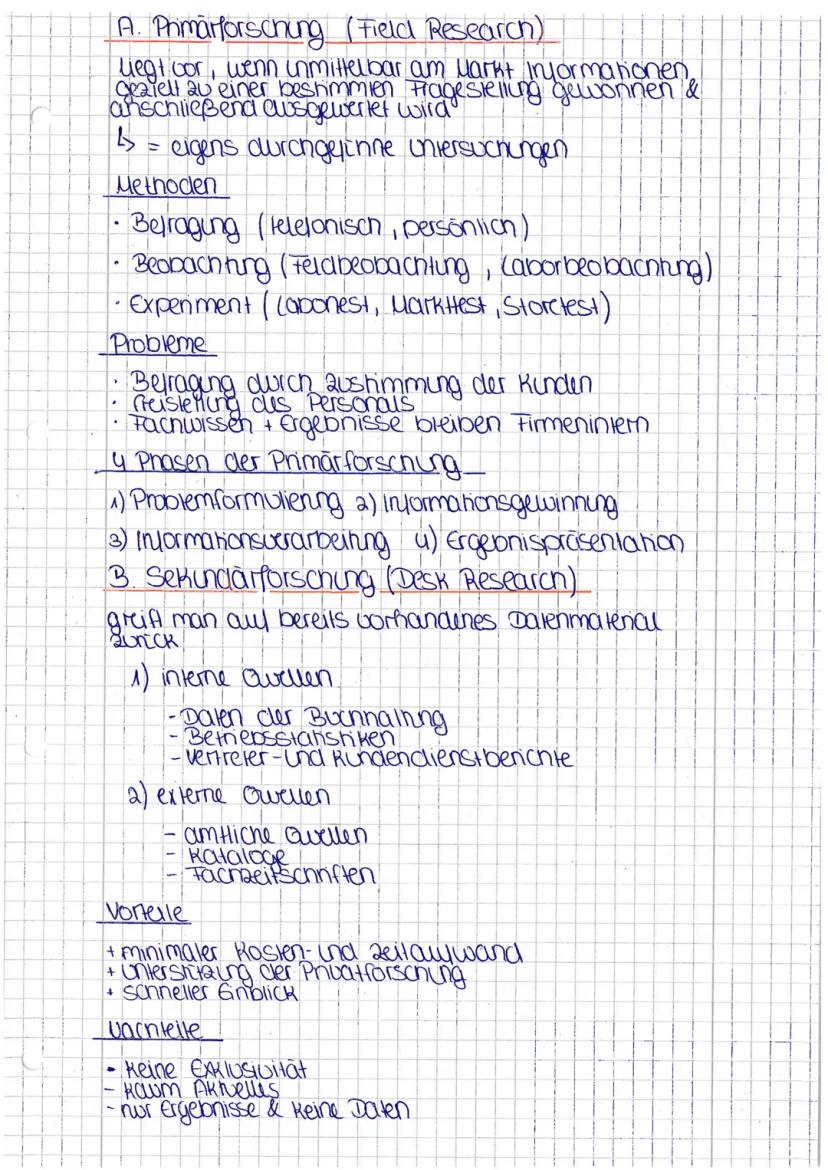 A. Primärforschung (Field Research)
liegt vor, wenn unmittelbar am Markt Informationen,
gezielt zu einer bestimmten Fragestellung gewonnen &
anschließend ausgewertet wird
↳ = eigens durchgeführte Untersuchungen
Methoden
· Befragung (telefonisch, persönlich)
· Beobachtung (Feldbeobachtung, Laborbeobachtung)
· Experiment (Labortest, Markttest, Storetest)
Probleme
· Befragung durch Zustimmung der Kunden
· Freistellung des Personals
· Fachwissen + Ergebnisse bleiben Firmenintern
4 Phasen der Primärforschung
1) Problemformulierung 2) Informationsgewinnung
3) Informationsverarbeitung 4) Ergebnispräsentation
B. Sekundärforschung (Desk Research)
greift man auf bereits vorhandenes Datenmaterial
zurück
1) interne Quellen
- Daten der Buchhaltung
- Betriebsstatistiken
- Vertreter- und Kundendienstberichte
2) externe Quellen
- amtliche Quellen
- Kataloge
- Fachzeitschriften
Vorteile
+ minimaler Kosten- und Zeitaufwand
+ Unterstützung der Privatforschung
+ schneller Einblick
Nachteile
- Keine Exklusivität
- kaum Aktuelles
- nur Ergebnisse & keine Daten